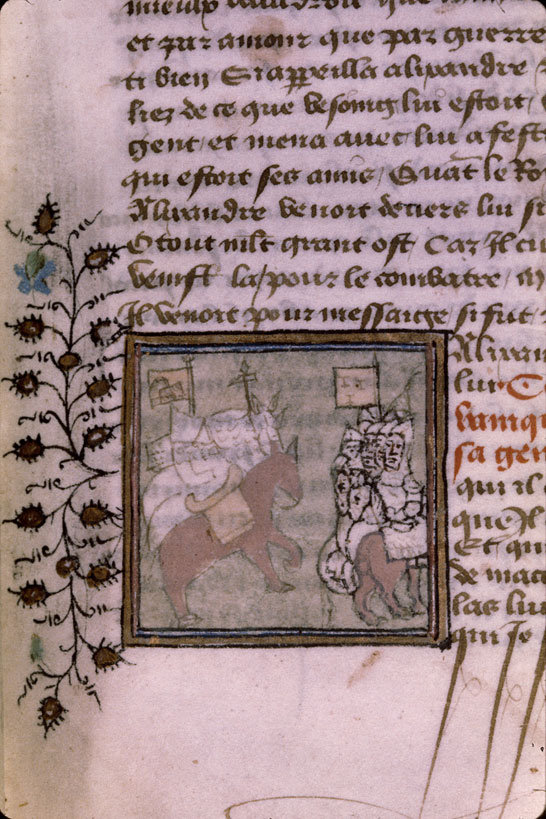 mieulx vauldroit que
et par amour que par guerre
ti bien Si appeilla alixandre
liez de ce que besoing lui estoit,
gent, et mena avec lui a fest
qui estoit ses amis, Quat le Ro
Alixandre venoit deuers lui si
O tout mlt grant ost, Car Il cu
venist la, pour le combatre,
Il venoit pour messaige, si fut
Alixan
lui
vainqu
sa gen
qui il
que Il
Et qu
de mac
las lui
qui Je